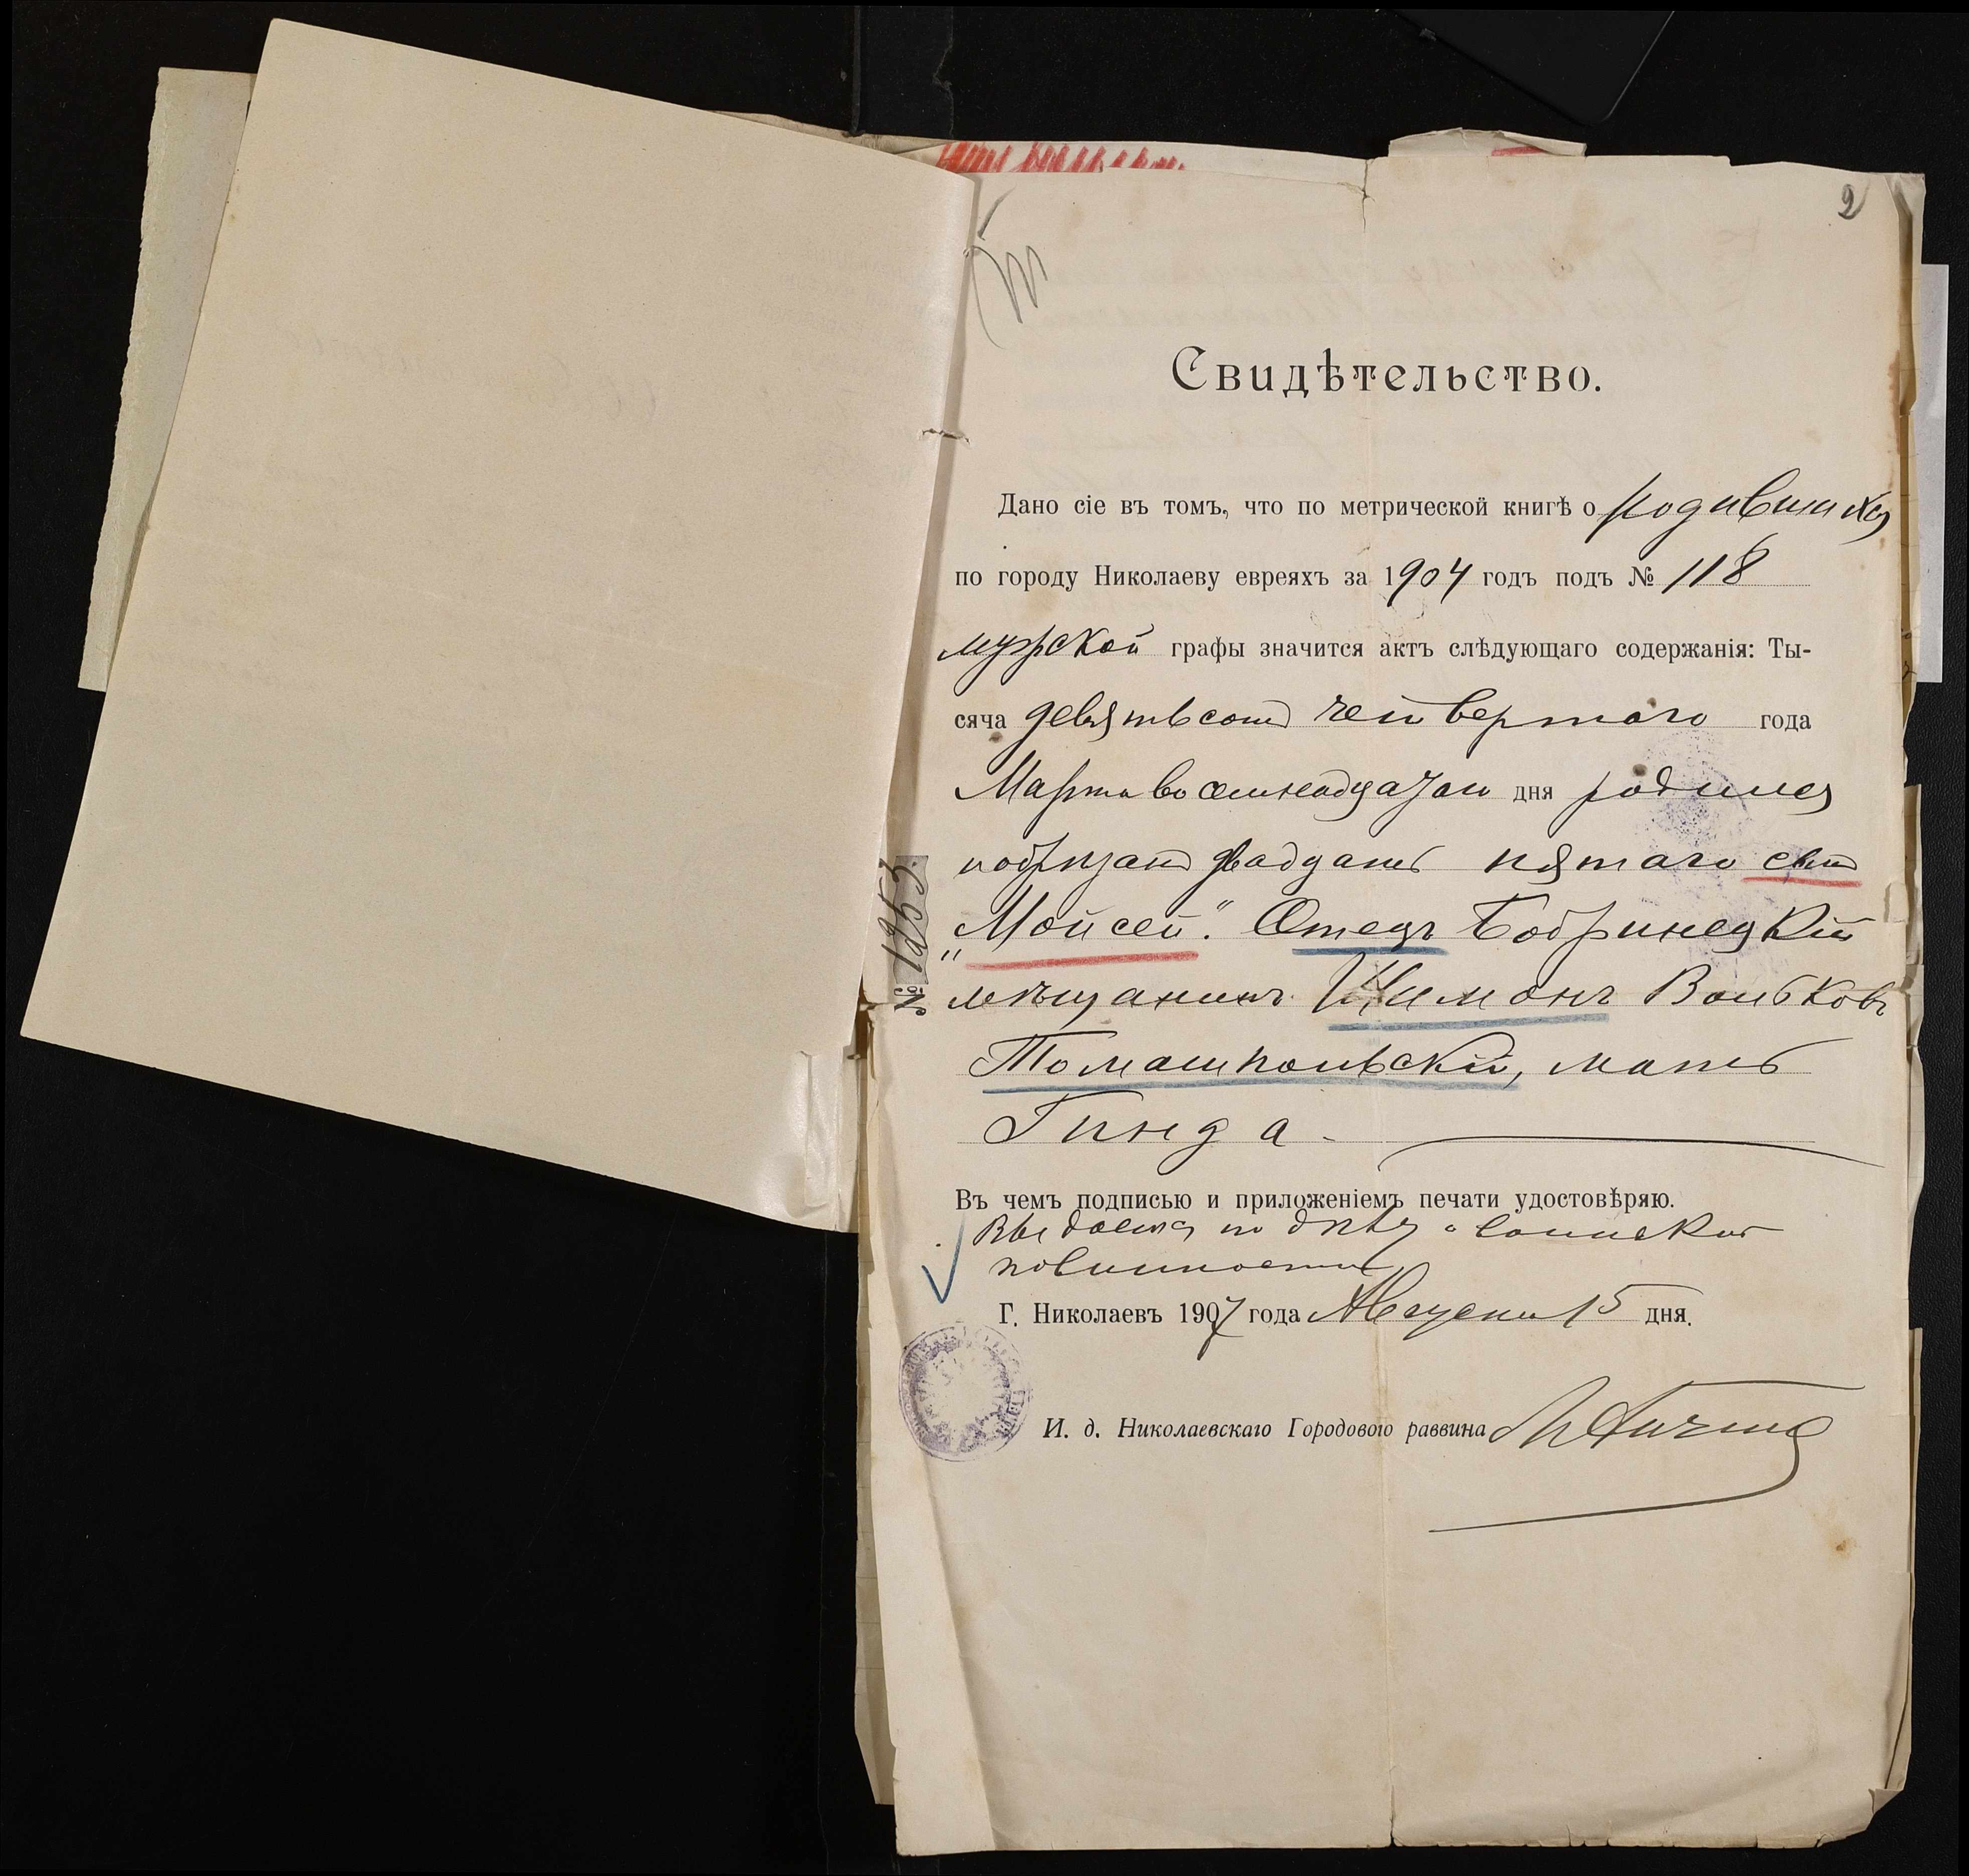 2
Свидѣтельство.
Дано сіе въ томъ, что по метрической книгѣ о родившихся
по городу Николаеву евреяхъ за 1904 годъ подъ № 118
мужской графы значится актъ слѣдующаго содержанія: Ты-
сяча девятьсотъ четвертаго года
Марта восемнадцатаго дня родился
и обрѣзанъ двадцать пятаго сынъ
„Мойсей“. Отецъ Бобринецкій
мѣщанинъ Шимонъ Вольковъ
Томашпольскій, мать
Гинда.
Въ чемъ подписью и приложеніемъ печати удостовѣряю.
Выдается по дѣлу о воинской
повинности
Г. Николаевъ 1907 года Августа 15 дня.
И. д. Николаевскаго Городового раввина
№ 1253.